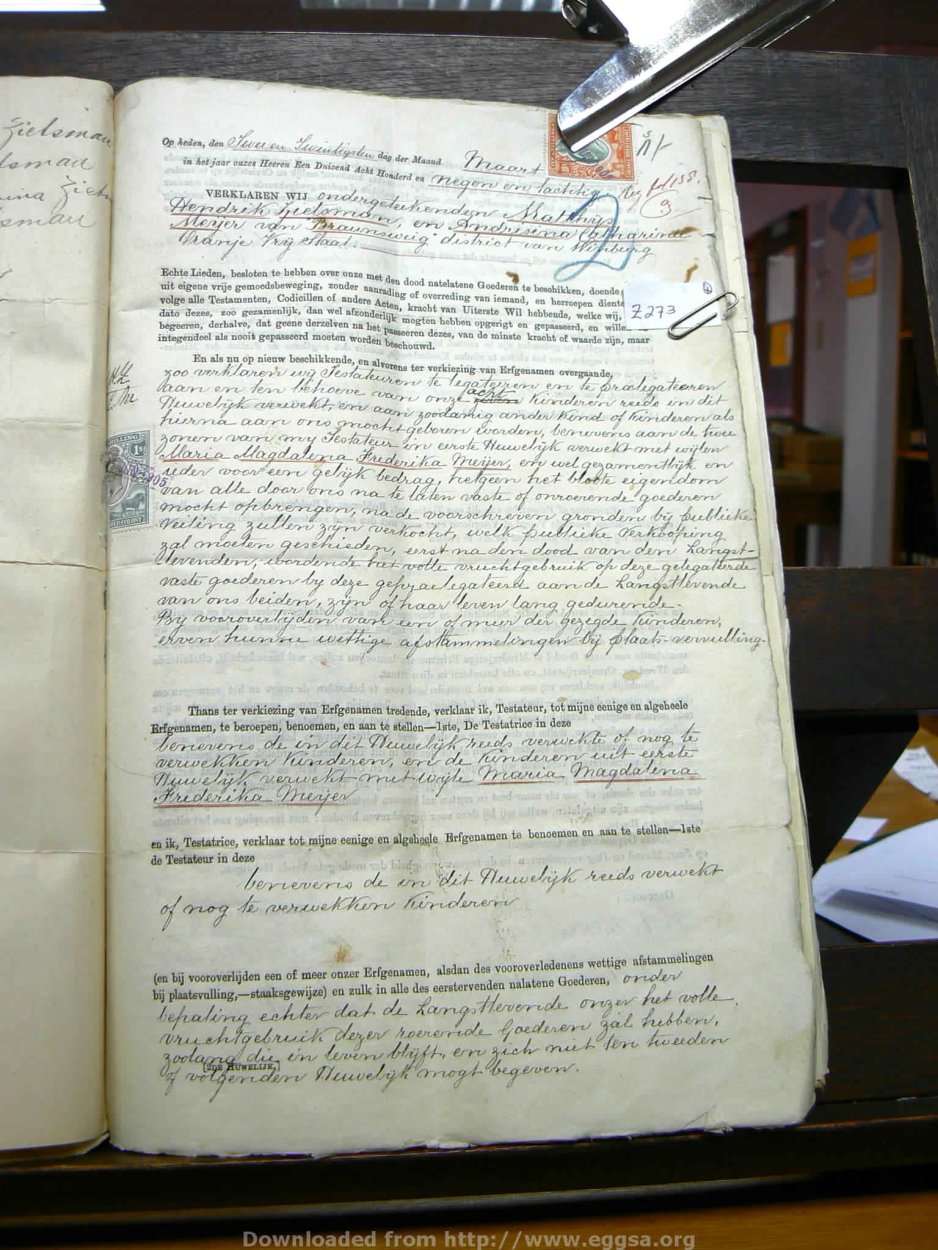 Zietsman
Op heden, den Twee en Twintigsten dag der Maand Maart
in het jaar onzes Heeren Een Duizend Acht Honderd en negen en tachtig
VERKLAREN WIJ ondergetekenden Matthijs
Hendrik Zietsman, en Andrisina Catharina
Meijer van Braunsweig district van Winburg
Oranje Vrij Staat.
2
Z 273
Echte Lieden, besloten te hebben over onze met den dood natelatene Goederen te beschikken, doende
uit eigene vrije gemoedsbeweging, zonder aanrading of overreding van iemand, en herroepen
volge alle Testamenten, Codicillen of andere Acten, kracht van Uiterste Wil hebbende, welke wij,
dato dezes, zoo gezamenlijk, dan wel afzonderlijk mogten hebben opgerigt en gepasseerd, en
begeeren, derhalve, dat geene derzelven na het passeeren dezes, van de minste kracht of waarde zijn, maar
integendeel als nooit gepasseerd moeten worden beschouwd.
En als nu op nieuw beschikkende, en alvorens ter verkiezing van Erfgenamen overgaande,
zoo verklaren wij Testateuren te legateren en te praelegateeren
aan en ten behoeve van onze acht kinderen reeds in dit
Huwelijk verwekt, en aan zoodanig ander kind of kinderen als
hierna aan ons mocht geboren worden, benevens aan de twee
zonen van my Testateur in eerste Huwelijk verwekt met wijlen
Maria Magdalena Frederika Meijer, en wel gezamentlijk en
ieder voor een gelijk bedrag, hetgeen het bloote eigendom
van alle door ons na te laten vaste of onroerende goederen
mocht opbrengen, na de voorschreven gronden bij publieke
veiling zullen zijn verkocht, welk publieke verkooping
zal moeten geschieden, eerst na den dood van den Langst-
levenden, wordende het volle vruchtgebruik op deze gelegateerde
vaste goederen by deze geprae legateerd aan de Langstlevende
van ons beiden, zijn of haar leven lang gedurende.
By vooroverlijden van een of meer der gezegde kinderen,
erven hunne wettige afstammelingen bij plaats-vervulling.
Thans ter verkiezing van Erfgenamen tredende, verklaar ik, Testateur, tot mijne eenige en algeheele
Erfgenamen, te beroepen, benoemen, en aan te stellen—1ste, De Testatrice in deze
benevens de in dit Huwelijk reeds verwekte of nog te
verwekken kinderen, en de kinderen uit eerste
Huwelijk verwekt met wijle Maria Magdalena
Frederika Meijer
en ik, Testatrice, verklaar tot mijne eenige en algeheele Erfgenamen te benoemen en aan te stellen—1ste
de Testateur in deze
benevens de in dit Huwelijk reeds verwekt
of nog te verwekken kinderen
(en bij vooroverlijden een of meer onzer Erfgenamen, alsdan des vooroverledenens wettige afstammelingen
bij plaatsvulling,—staaksgewijze) en zulk in alle des eerstervenden nalatene Goederen, onder
bepaling echter dat de Langstlevende onzer het volle
vruchtgebruik dezer roerende Goederen zal hebben,
zoolang die in leven blijft, en zich niet ten tweeden
[2DE HUWELIJK.]
of volgenden Huwelijk mogt begeven.
Downloaded from http://www.eggsa.org